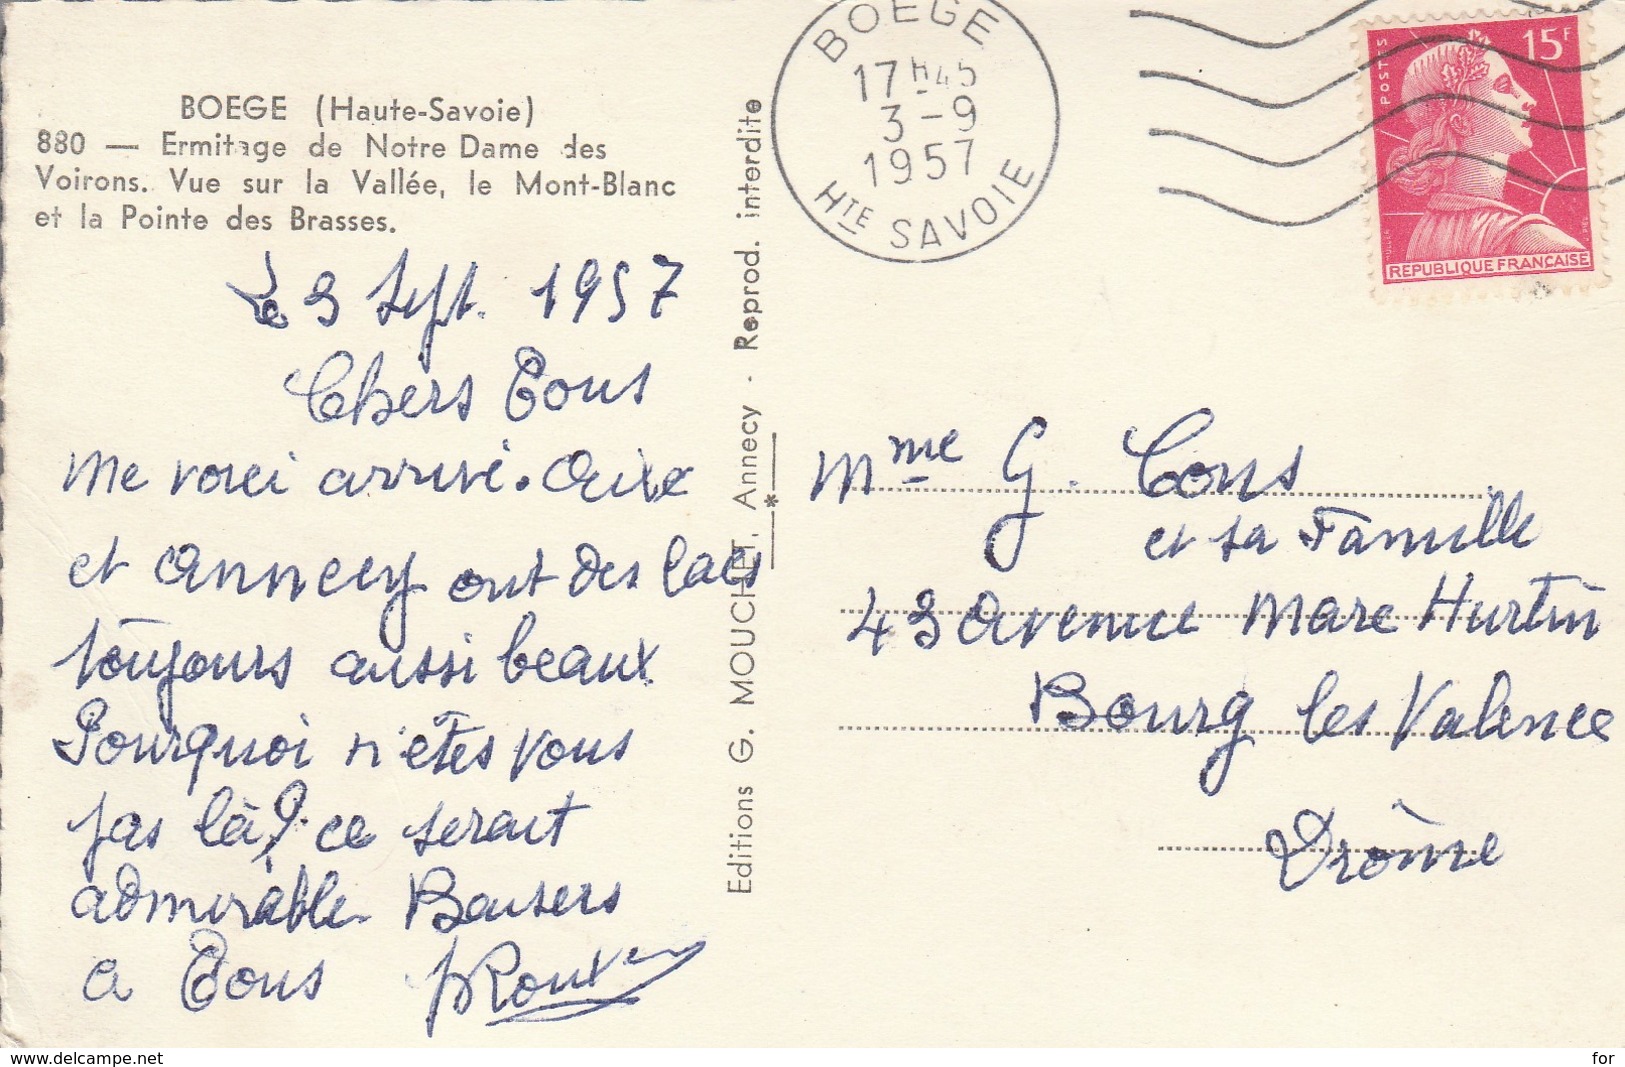 BOEGE (Haute-Savoie)
880 — Ermitage de Notre Dame des
Voirons. Vue sur la Vallée, le Mont-Blanc
et la Pointe des Brasses.
Le 3 Sept. 1957
Chers Tous
Me voici arrivé. Aix
et Annecy ont des lacs
toujours aussi beaux
Pourquoi n'êtes vous
pas là? ce serait
admirable. Baisers
a Tous PRoux
Editions G. MOUCHET, Annecy · Reprod. interdite
*
BOEGE
17H45
3-9
1957
HTE SAVOIE
POSTES
15F
MULLER
REPUBLIQUE FRANÇAISE
Mme G. Cons
et sa Famille
43 Avenue Marc Hurtin
Bourg les Valence
Drôme
www.delcampe.net
for